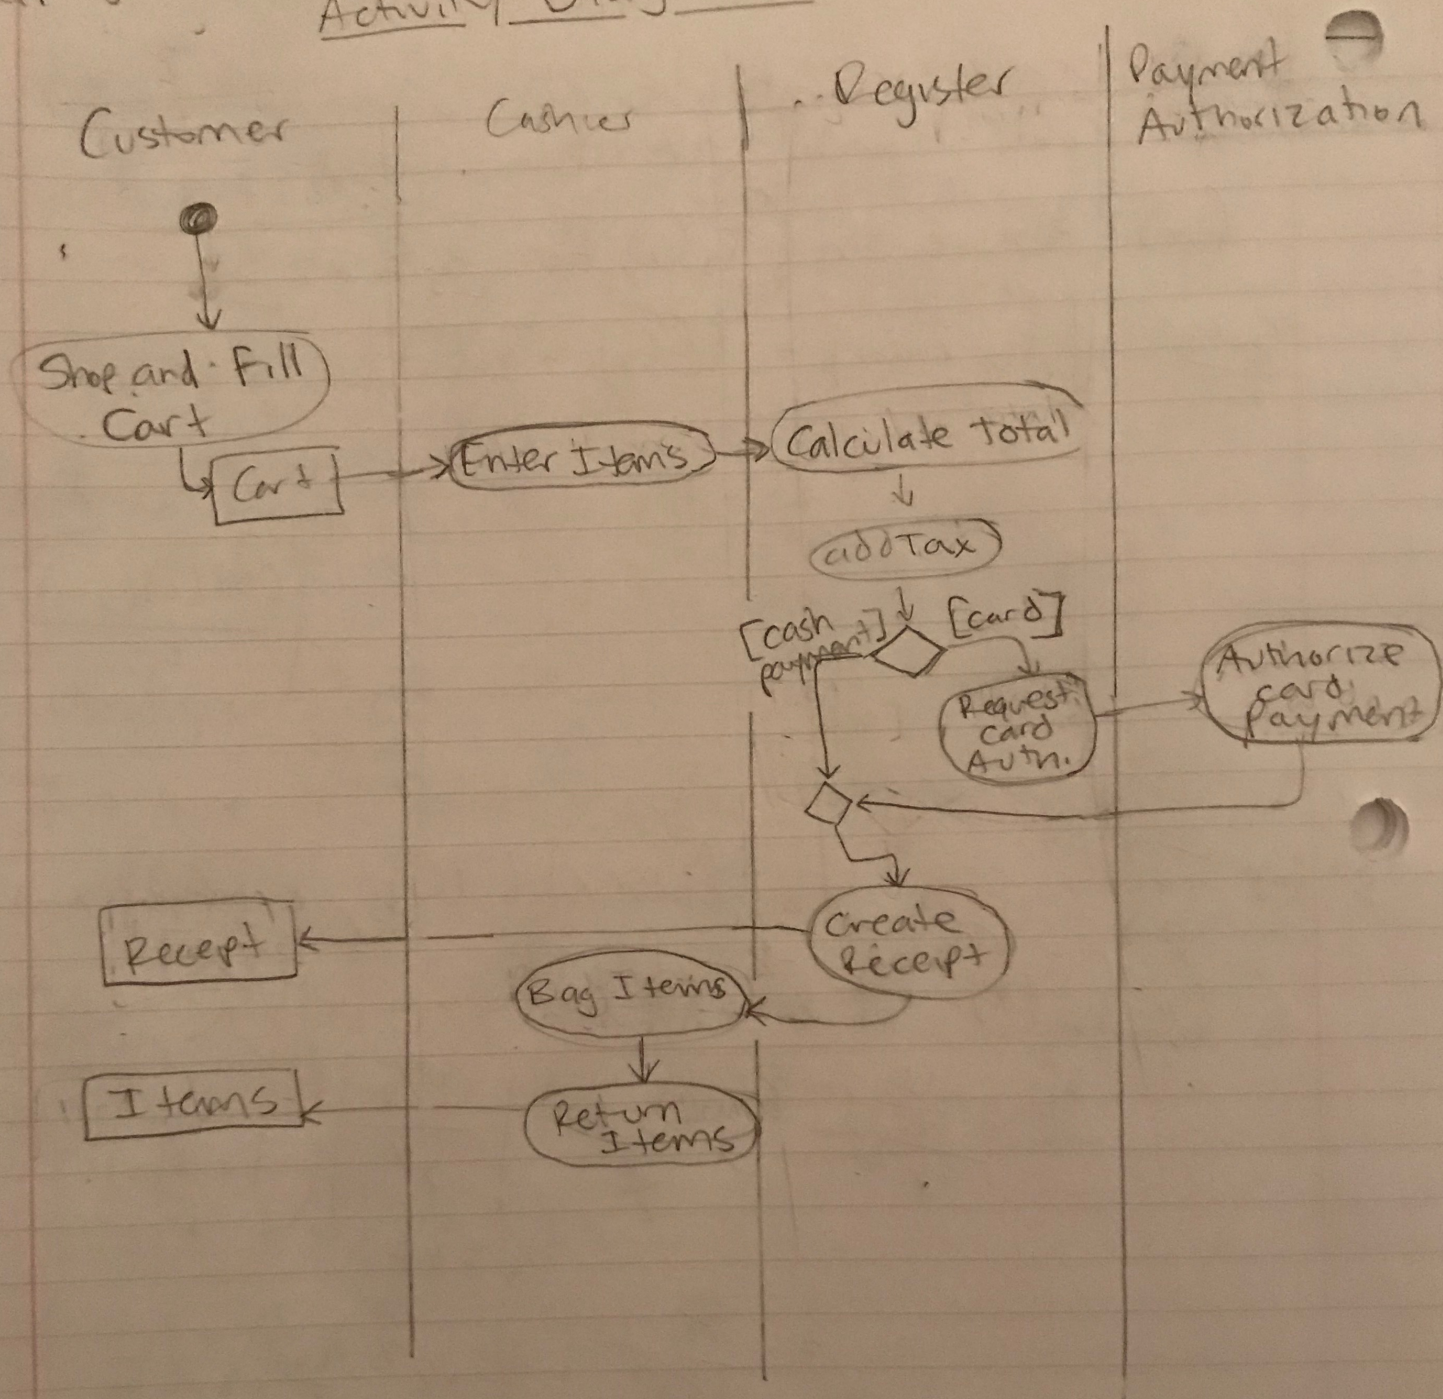 Activity Diag
Customer
Cashier
Register
Payment
Authorization
Shop and Fill
Cart
Cart
Enter Items
Calculate Total
addTax
[cash
payment]
[card]
Request
Card
Auth.
Authorize
card
Payment
Create
Receipt
Receipt
Bag Items
Return
Items
Items